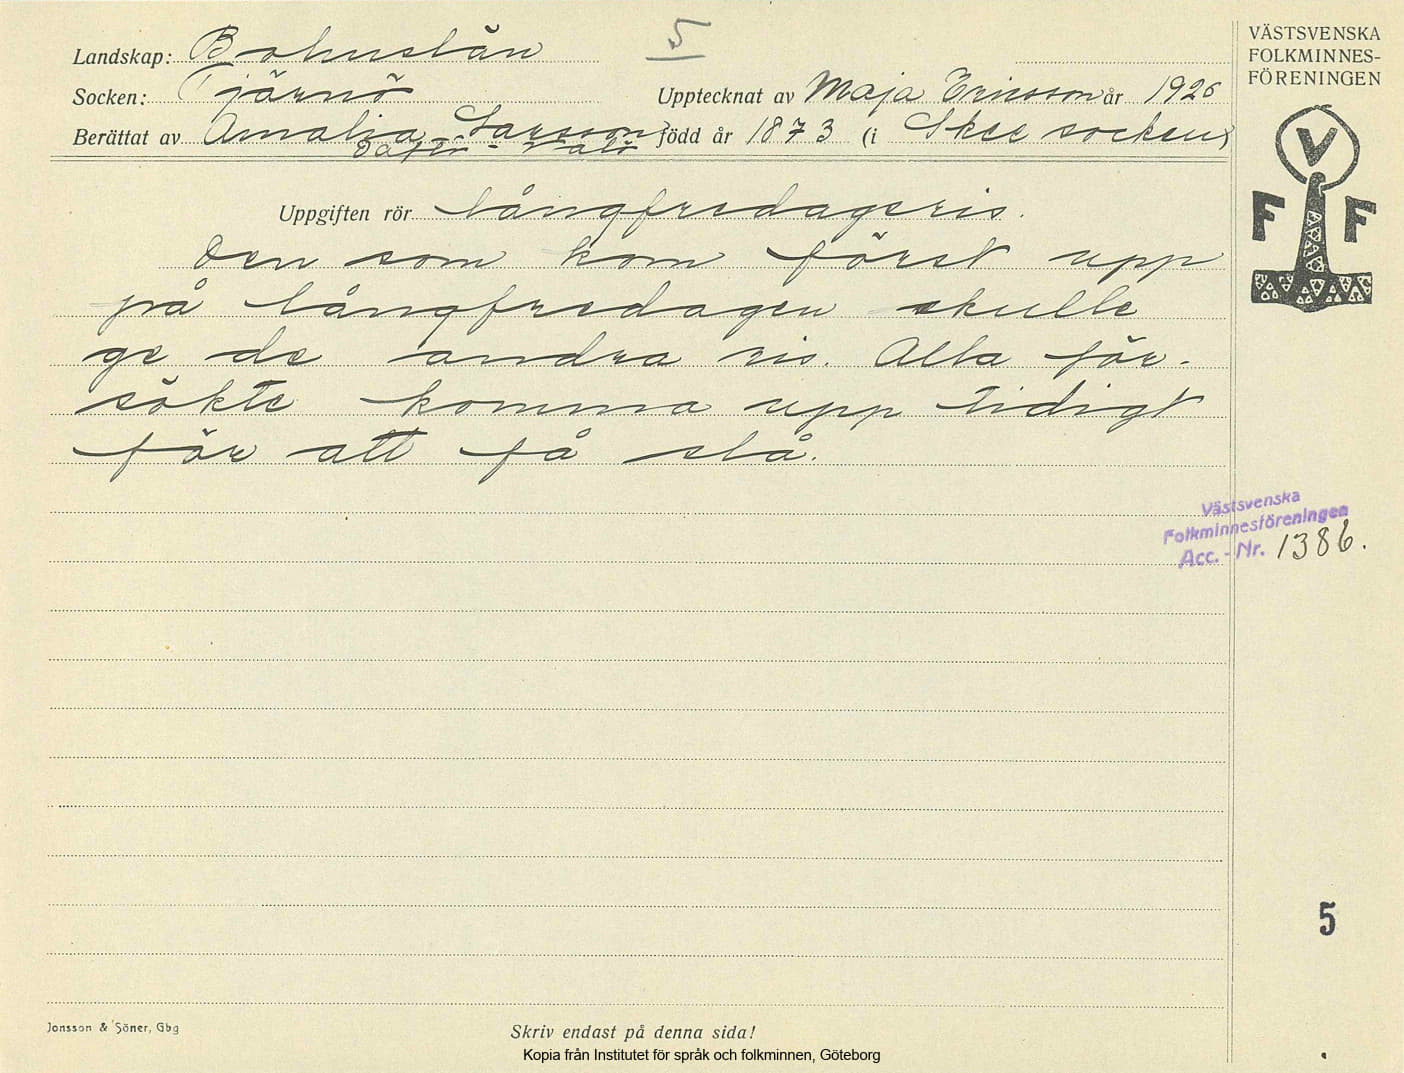 Landskap: Bohuslän
5
VÄSTSVENSKA
FOLKMINNES-
FÖRENINGEN
Socken: Tjärnö
Upptecknat av Maja Ericsson år 1926
Berättat av Amalia Larsson född år 1873 (i Skee socken)
V
F F
Uppgiften rör långfredagsris.
Den som kom först upp
på långfredagen skulle
ge de andra ris. Alla för-
sökte komma upp tidigt
för att få slå.
Västsvenska
Folkminnesföreningen
Acc. - Nr. 1386.
5
Jonsson & Söner, Gbg
Skriv endast på denna sida!
Kopia från Institutet för språk och folkminnen, Göteborg